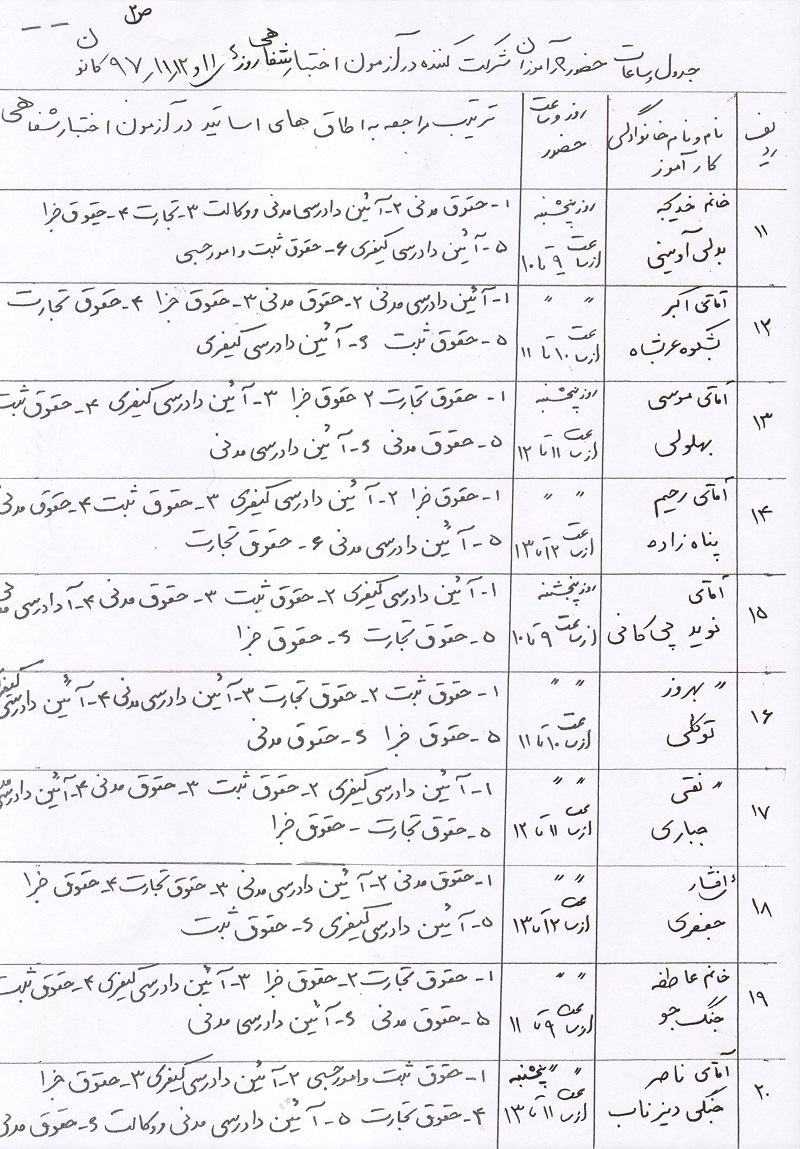 ص ۳
جدول ساعات حضور کارآموزان شرکت کننده در آزمون اختبار شفاهی روز ۱۱ و ۱۱،۱۲، ۹۷ کانون
ردیف نام و نام خانوادگی کارآموز روز و ساعت حضور ترتیب مراجعه به اطاق های اساتید در آزمون اختبار شفاهی
۱۱ خانم خدیجه روز پنجشنبه ۱- حقوق مدنی ۲- آئین دادرسی مدنی و وکالت ۳- تجارت ۴- حقوق جزا
بدلی آدینی از ساعت ۹ تا ۱۰ ۵- آئین دادرسی کیفری ۶- حقوق ثبت و امور حسبی
۱۲ آقای اکبر " " ۱- آئین دادرسی مدنی ۲- حقوق مدنی ۳- حقوق جزا ۴- حقوق تجارت
بشکوه عرشاه از ساعت ۱۰ تا ۱۱ ۵- حقوق ثبت ۶- آئین دادرسی کیفری
۱۳ آقای موسی روز پنجشنبه ۱- حقوق تجارت ۲ حقوق جزا ۳- آئین دادرسی کیفری ۴- حقوق ثبت
بهلولی از ساعت ۱۱ تا ۱۲ ۵- حقوق مدنی ۶- آئین دادرسی مدنی
۱۴ آقای رحیم " " ۱- حقوق جزا ۲- آئین دادرسی کیفری ۳- حقوق ثبت ۴- حقوق مدنی
پناه زاده از ساعت ۱۲ تا ۱۳ ۵- آئین دادرسی مدنی ۶- حقوق تجارت
۱۵ آقای روز پنجشنبه ۱- آئین دادرسی کیفری ۲- حقوق ثبت ۳- حقوق مدنی ۴- آ دادرسی مدنی
نوید چی کانی از ساعت ۹ تا ۱۰ ۵- حقوق تجارت ۶- حقوق جزا
۱۶ " بهروز " " ۱- حقوق ثبت ۲- حقوق تجارت ۳- آئین دادرسی مدنی ۴- آئین دادرسی کیفری
توکلی از ساعت ۱۰ تا ۱۱ ۵- حقوق جزا ۶- حقوق مدنی
۱۷ " نقی " " ۱- آئین دادرسی کیفری ۲- حقوق ثبت ۳- حقوق مدنی ۴- آئین دادرسی مدنی
جباری از ساعت ۱۱ تا ۱۲ ۵- حقوق تجارت - حقوق جزا
۱۸ افشار " " ۱- حقوق مدنی ۲- آئین دادرسی مدنی ۳- حقوق تجارت ۴- حقوق جزا
جعفری از ساعت ۱۲ تا ۱۳ ۵- آئین دادرسی کیفری ۶- حقوق ثبت
۱۹ خانم عاطفه " " ۱- حقوق تجارت ۲- حقوق جزا ۳- آئین دادرسی کیفری ۴- حقوق ثبت
جنگ جو از ساعت ۹ تا ۱۱ ۵- حقوق مدنی ۶- آئین دادرسی مدنی
۲۰ آقای ناصر " " پنجشنبه ۱- حقوق ثبت و امور حسبی ۲- آئین دادرسی کیفری ۳- حقوق جزا
جنگلی دیزناب از ساعت ۱۱ تا ۱۳ ۴- حقوق تجارت ۵- آئین دادرسی مدنی و وکالت ۶- حقوق مدنی